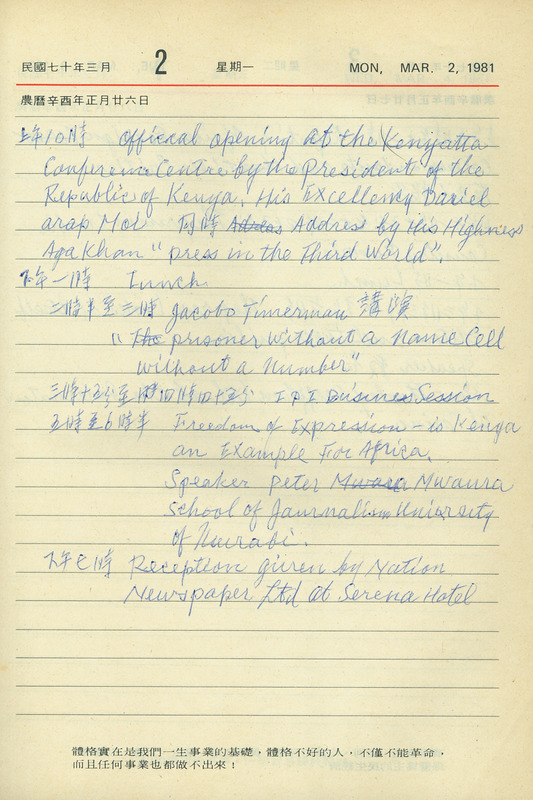 民國七十年三月 2 星期一 MON, MAR. 2, 1981
農曆辛酉年正月廿六日
上午10時 officcal opening at the Kenyatta
Conference Centre by the President of the
Republic of Kenya. His Excellency Daniel
arap Moi 同時 Adress Address by His Highness
Aga Khan "press in the Third World".
下午一時 Lunch
二時半至三時 Jacobo Timerman 講演
"The prisoner without a name Cell
without a number"
三時十五分至四時四十五分 IPI Business Session
五時至6時半 Freedom of Expression - is Kenya
an Example For Africa.
Speaker Peter Mwaura
School of Journalism University
of Nairobi.
下午七時 Reception given by Nation
Newspaper Ltd at Serena Hotel
體格實在是我們一生事業的基礎，體格不好的人，不僅不能革命，
而且任何事業也都做不出來！